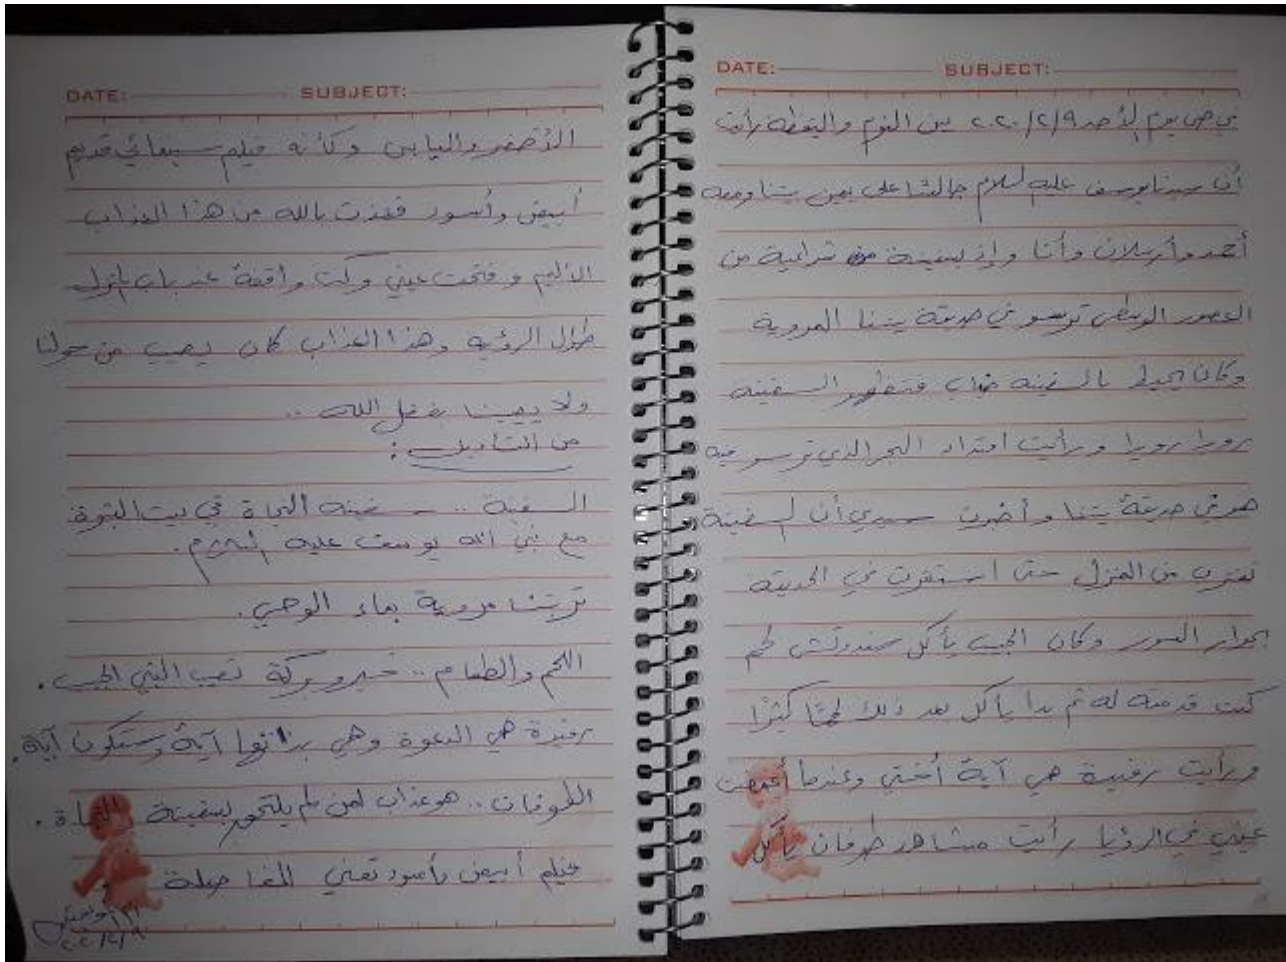 DATE: SUBJECT:
في صباح يوم الأحد ٢٠٢٠/٢/٩ بين النوم واليقظة رأيت
أن سيدنا يوسف عليه السلام جالسًا على يمين بيتنا ومعه
أحمد وأرسلان وأنا وإذ بسفينة شراعية من
العصور الوسطى ترسو في حديقة بيتنا المروية
وكان يحيط بالسفينة ضباب فتظهر السفينة
رويدا رويدا ورأيت امتداد البحر الذي ترسو فيه
هو في حديقة بيتنا وأخبرت سيدي أن السفينة
تقترب من المنزل حتى استقرت في الحديقة
بجوار السور وكان الحبيب يأكل سندوتش لحم
كنت قدمته له ثم بدأ يأكل بعد ذلك لحمًا كثيرًا
ورأيت رفيدة هي آية أختي وعندما أغمضت
عيني في الرؤيا رأيت مشاهد طوفان يأكل
DATE: SUBJECT:
الأخضر واليابس وكأنه فيلم سينمائي قديم
أبيض وأسود فعذت بالله من هذا العذاب
الأليم وفتحت عيني وكنت واقفة عند باب المنزل
طوال الرؤية وهذا العذاب كان يصيب من حولنا
ولا يصيبنا بفضل الله ..
من التأويل :
السفينة .. سفينة النجاة في بيت النبوة
مع نبي الله يوسف عليه السلام.
تربتنا مروية بماء الوحي.
اللحم والطعام .. خير وبركة تصيب النبي الحبيب.
رفيدة هي الدعوة وهي بذاتها آية وستكون آية.
الطوفان .. هو عذاب لمن لم يلتحق بسفينة النجاة.
فيلم أبيض وأسود تعني المفاصلة